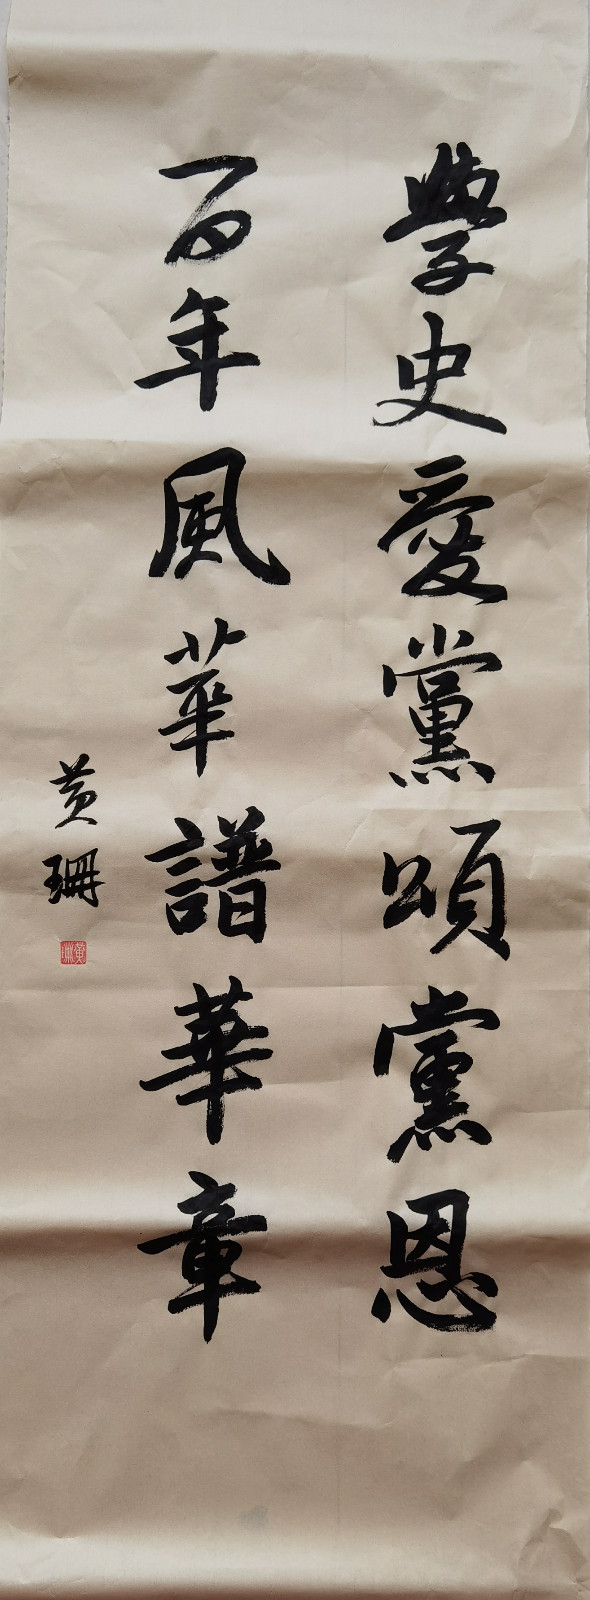 學史愛黨頌黨恩
百年風華譜華章
黄珊
黄珊